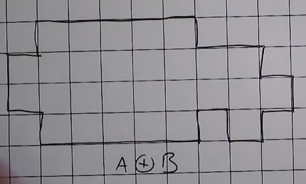 A ⊕ B